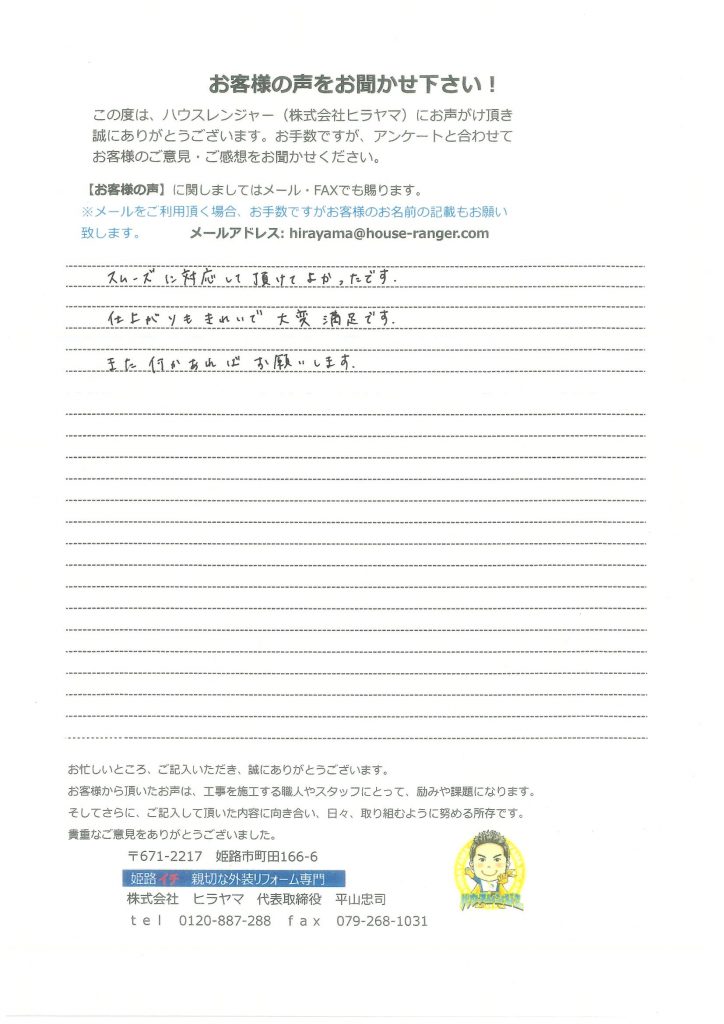 お客様の声をお聞かせ下さい！
この度は、ハウスレンジャー（株式会社ヒラヤマ）にお声がけ頂き
誠にありがとうございます。お手数ですが、アンケートと合わせて
お客様のご意見・ご感想をお聞かせください。
【お客様の声】に関しましてはメール・FAXでも賜ります。
※メールをご利用頂く場合、お手数ですがお客様のお名前の記載もお願い
致します。 メールアドレス: hirayama@house-ranger.com
スムーズに対応して頂けてよかったです.
仕上がりもきれいで 大変 満足です.
また 何かあれば お願いします.
お忙しいところ、ご記入いただき、誠にありがとうございます。
お客様から頂いたお声は、工事を施工する職人やスタッフにとって、励みや課題になります。
そしてさらに、ご記入して頂いた内容に向き合い、日々、取り組むように努める所存です。
貴重なご意見をありがとうございました。
〒671-2217 姫路市町田166-6
姫路イチ 親切な外装リフォーム専門
株式会社 ヒラヤマ 代表取締役 平山忠司
ｔｅｌ 0120-887-288 ｆａｘ 079-268-1031
ハウスレンジャー